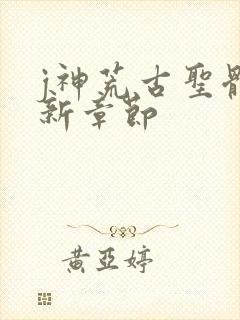 j神荒古聖體
新章節
黃亞婷